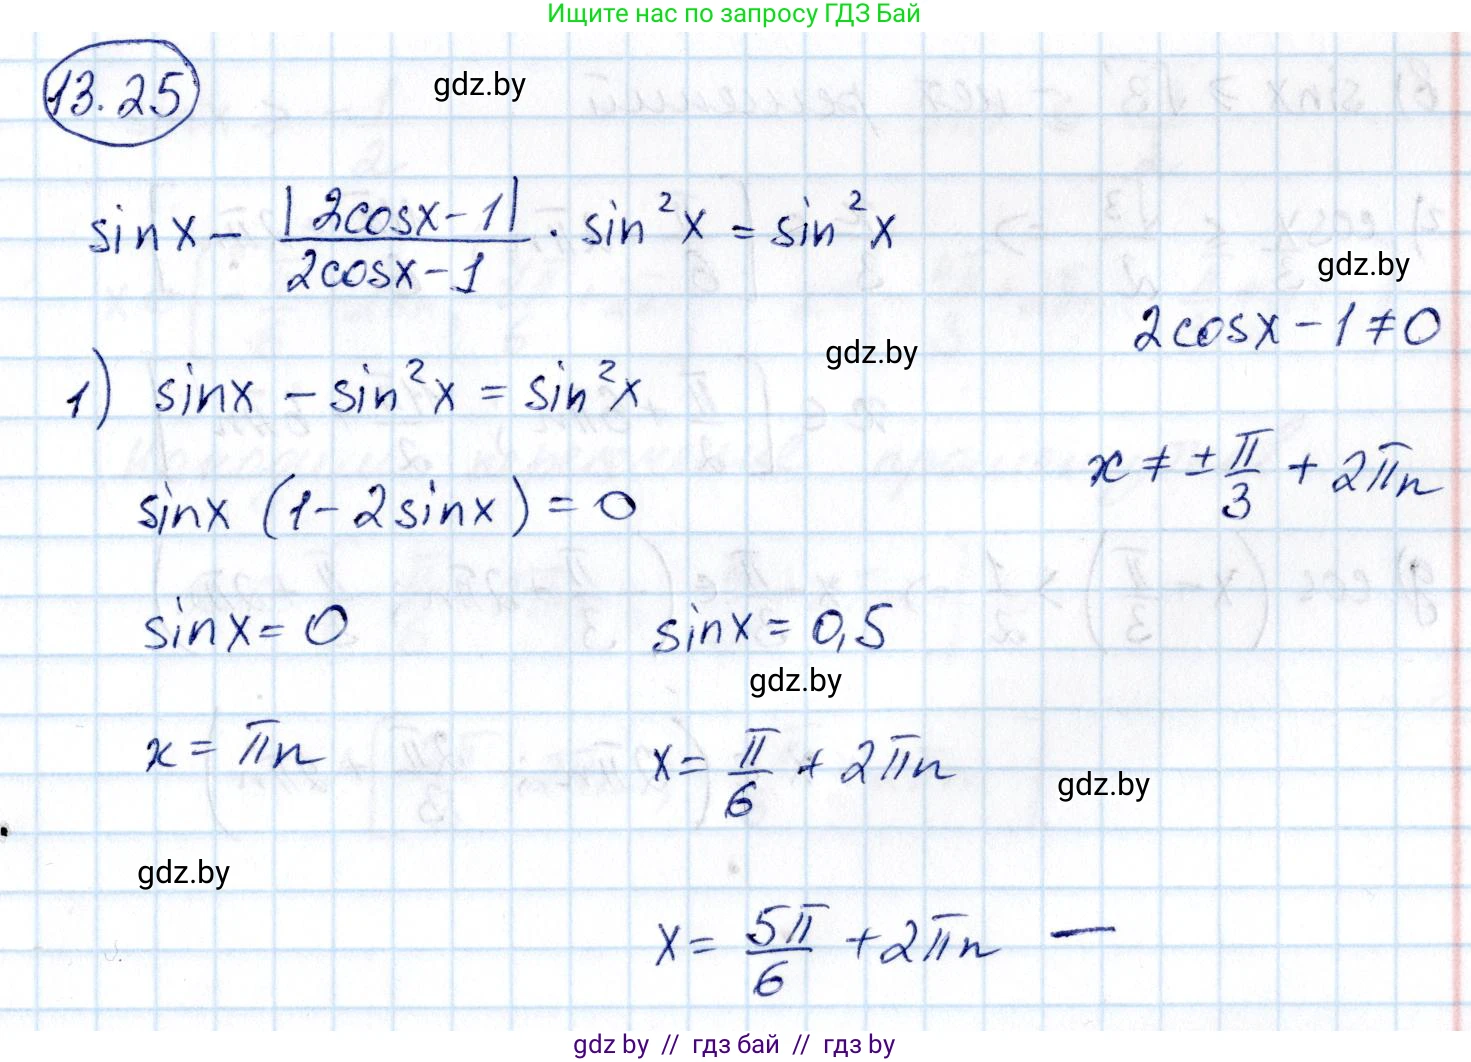 Ищите нас по запросу ГДЗ Бай
13.25
gdz.by
sinx - |2cosx-1| / 2cosx-1 · sin²x = sin²x
gdz.by
2cosx - 1 ≠ 0
gdz.by
1) sinx - sin²x = sin²x
x ≠ ± π/3 + 2πn
sinx (1-2sinx) = 0
sinx = 0 sinx = 0,5
gdz.by
x = πn x = π/6 + 2πn
gdz.by
gdz.by
x = 5π/6 + 2πn —
gdz.by // гдз бай // гдз by